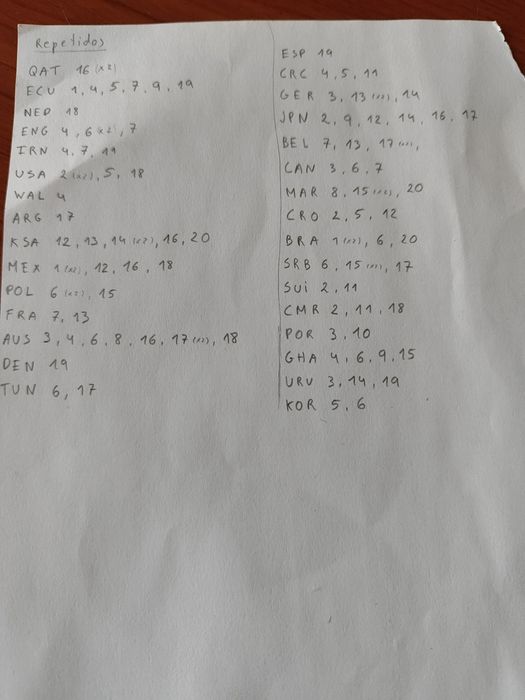 Repetidos
QAT 16 (x2)
ECU 1, 4, 5, 7, 9, 19
NED 18
ENG 4, 6 (x2), 7
IRN 4, 7, 11
USA 2 (x2), 5, 18
WAL 4
ARG 17
KSA 12, 13, 14 (x2), 16, 20
MEX 1 (x2), 12, 16, 18
POL 6 (x2), 15
FRA 7, 13
AUS 3, 4, 6, 8, 16, 17 (x2), 18
DEN 19
TUN 6, 17
ESP 19
CRC 4, 5, 11
GER 3, 13 (x2), 14
JPN 2, 9, 12, 14, 16, 17
BEL 7, 13, 17 (x2),
CAN 3, 6, 7
MAR 8, 15 (x2), 20
CRO 2, 5, 12
BRA 1 (x2), 6, 20
SRB 6, 15 (x2), 17
SUI 2, 11
CMR 2, 11, 18
POR 3, 10
GHA 4, 6, 9, 15
URU 3, 14, 19
KOR 5, 6